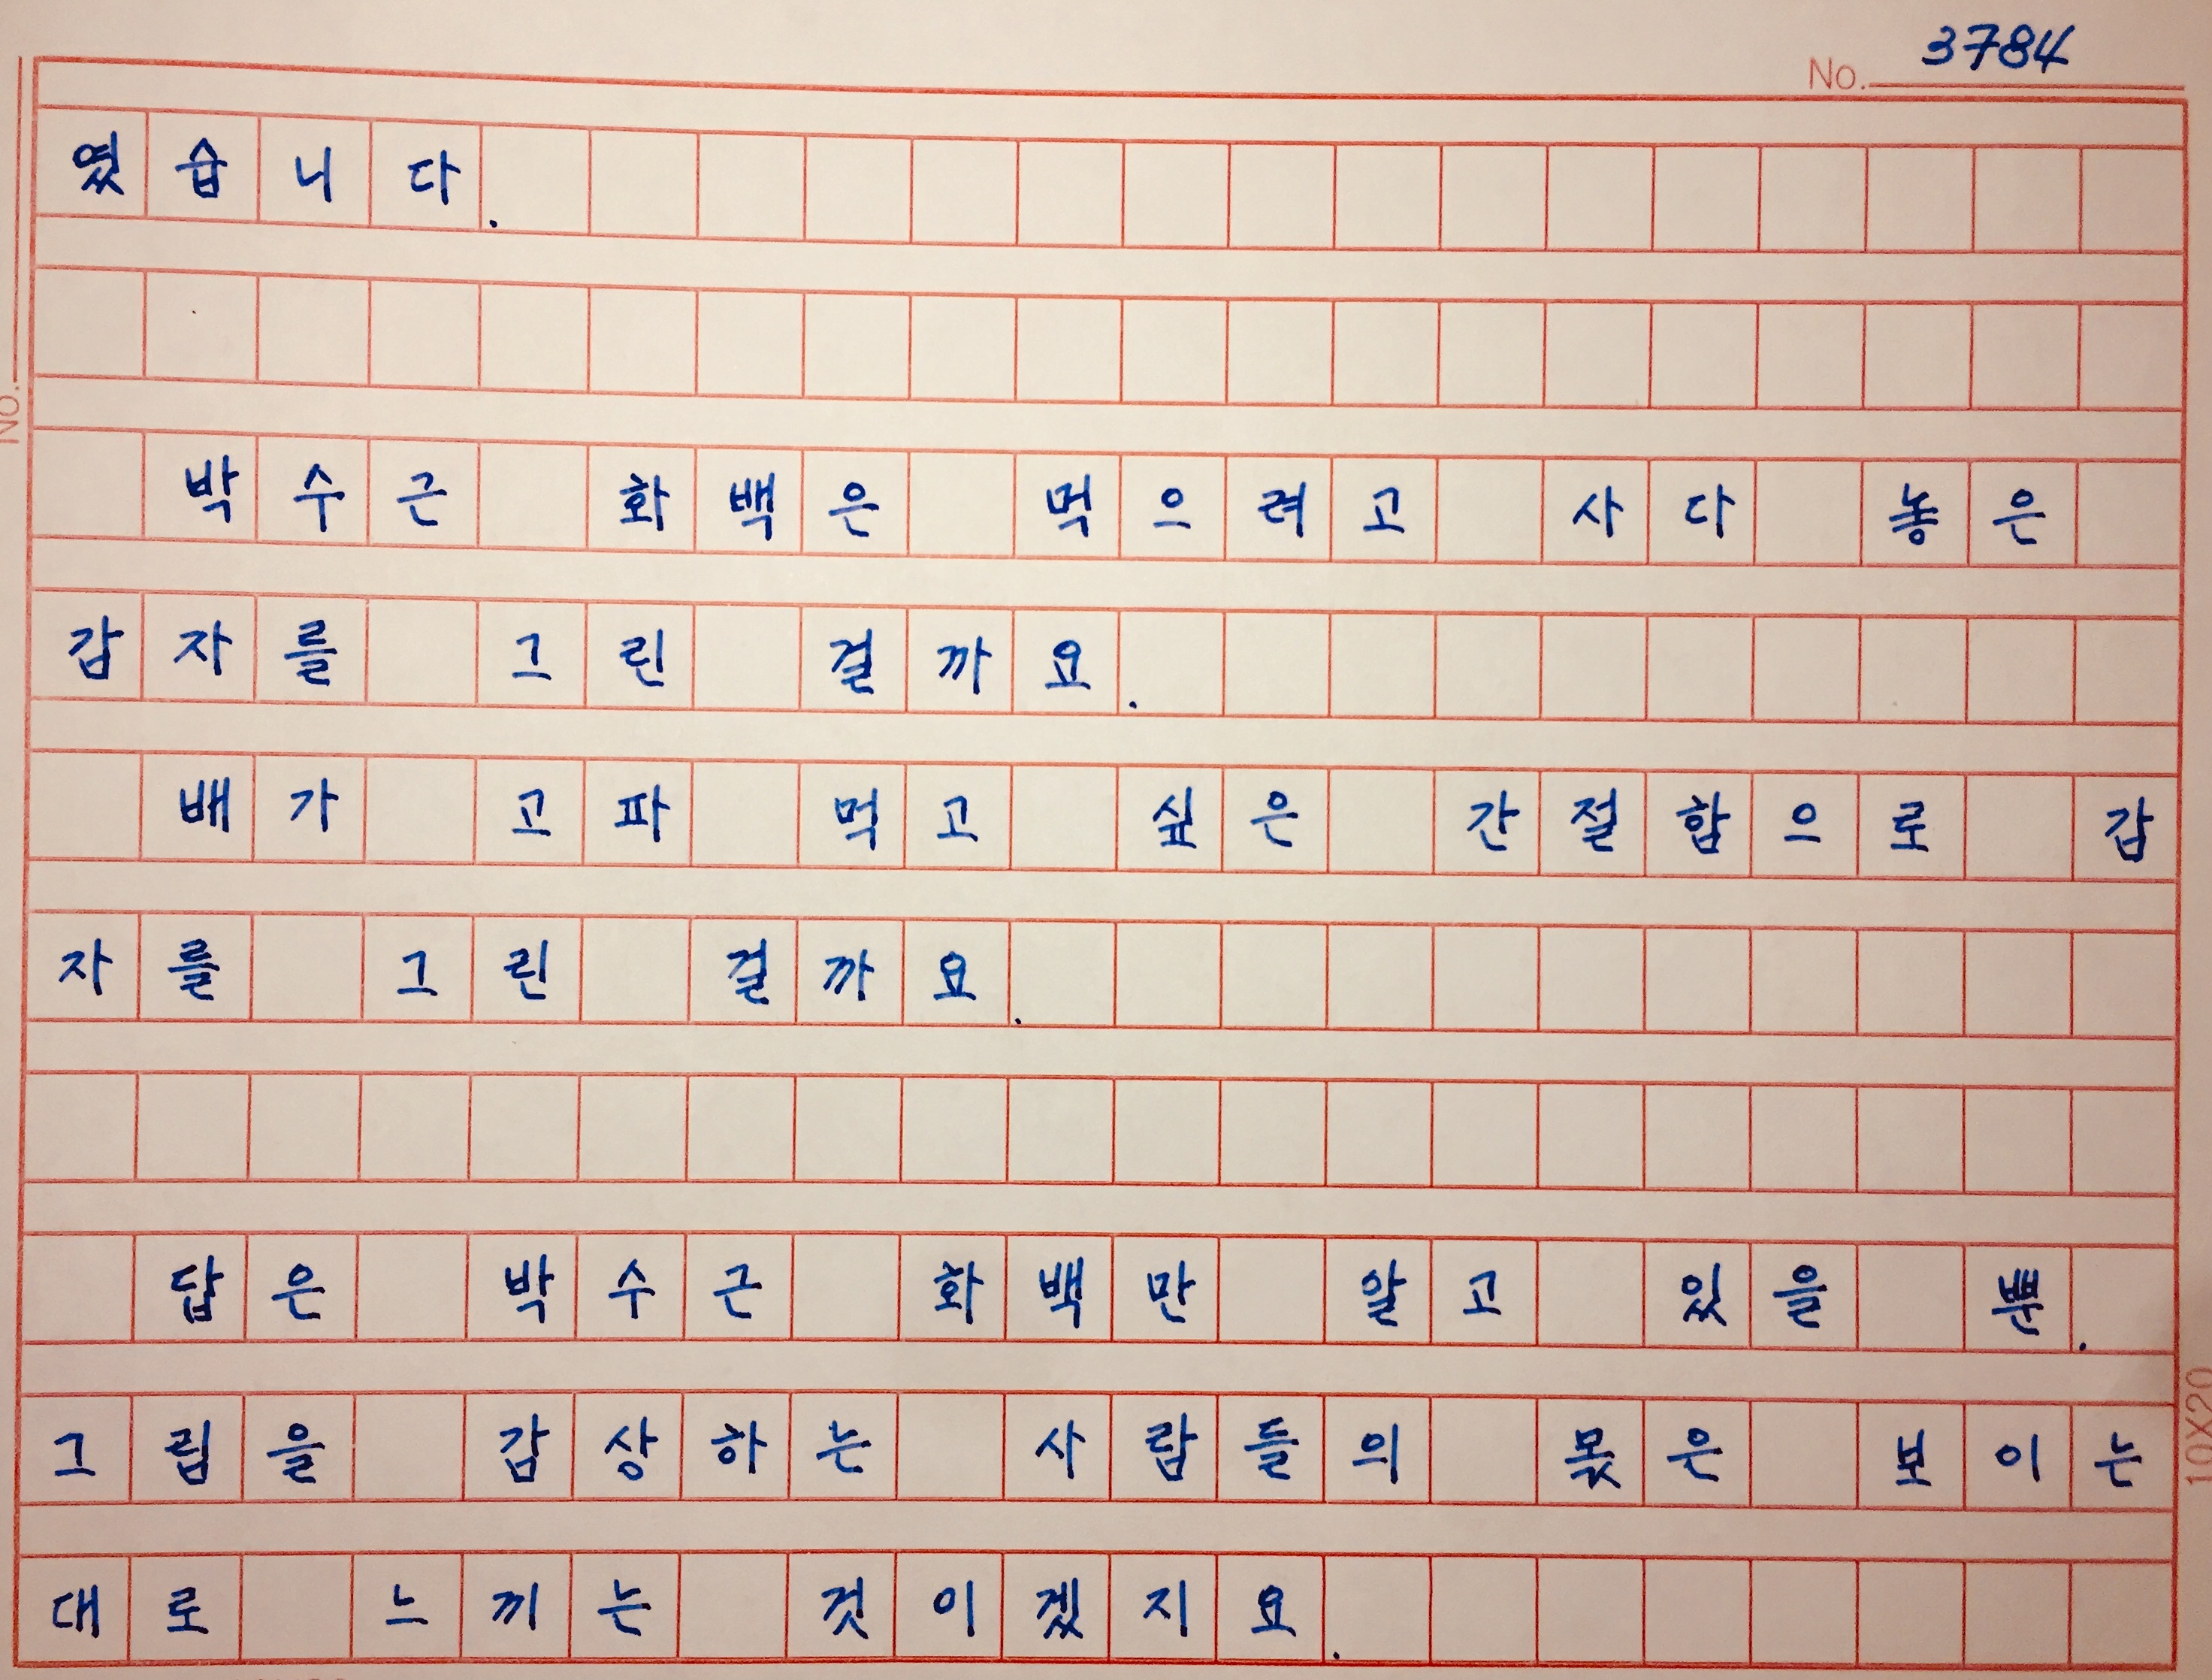 3784
No.
였습니다.
No.
박수근 화백은 먹으려고 사다 놓은
감자를 그린 걸까요.
배가 고파 먹고 싶은 간절함으로 감
자를 그린 걸까요.
답은 박수근 화백만 알고 있을 뿐.
그림을 감상하는 사람들의 몫은 보이는
10X20
대로 느끼는 것이겠지요.